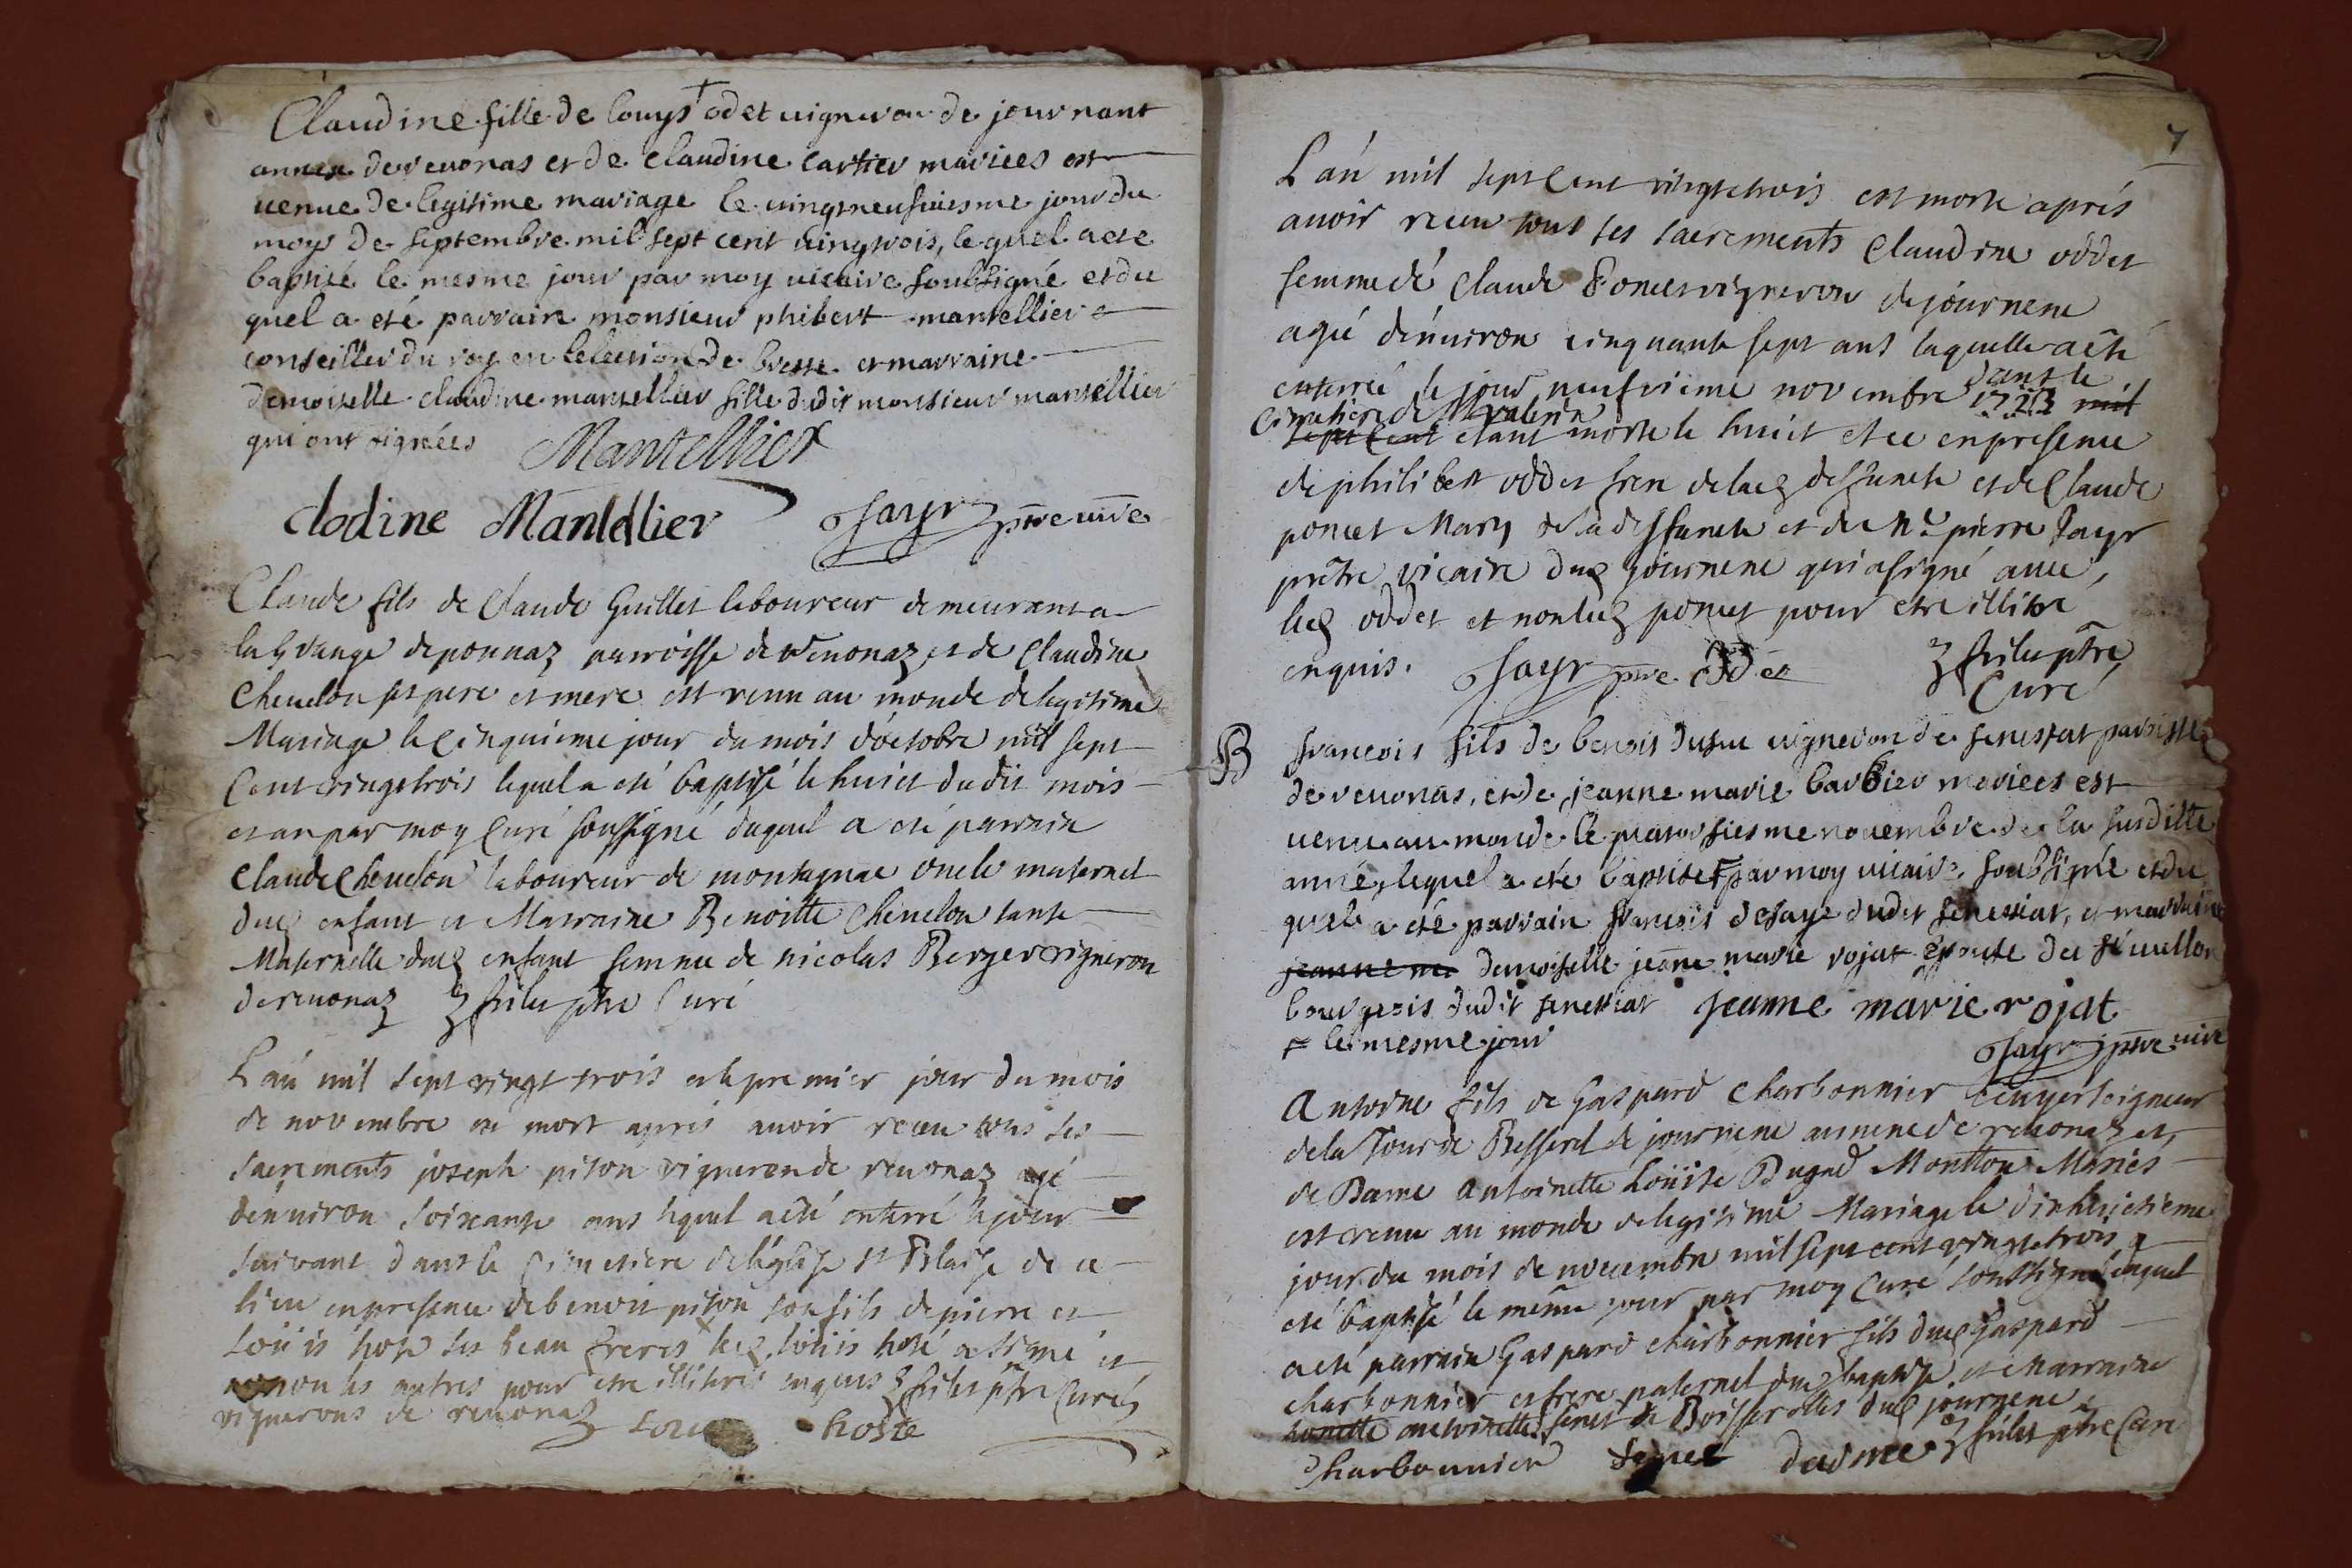 Claudine fille de louys odet vigneron de journant
annex de revonas et de claudine cartier mariees est
venue de legitime mariage le vingtneufviesme jour du
moys de septembre mil sept cent vingtrois, le quel a ete
baptisé le mesme jour par moy vicaire soubsigné et du
quel a eté parrain monsieur phibert mantellier
conseiller du roy en l'election de bresse et marraine
demoiselle claudine mantellier fille dudit monsieur mantellier
qui ont signées Mantellier
clodine Mantellier Jayr ptre vire
Claude fils de Claude Guillet laboureur demeurant a
la Grange de ponnaz parroisse de revonaz et de Claudine
Chevelon ses pere et mere est venu au monde de legitime
Mariage le cinquieme jour du mois d'octobre mil sept
Cent vingttrois lequel a eté baptisé le huict du dit mois
et an par moy Curé soussigné duquel a eté parrain
Claude Chevelon laboureur de montagnac oncle maternel
dud enfant et Marraine Benoitte Chevelon tante
Maternelle dud enfant femme de nicolas Berger vigneron
de revonaz ptre Curé
L'an mil sept vingt trois et le premier jour du mois
de novembre est mort apres avoir receu tous ses
sacrements joseph piton vigneron de revonaz agé
denviron soixante ans lequel a eté enterré le jour
suivant dans le Cimetiere de l'église St Blaise de ce
lieu en presence de benoit piton son fils de pierre et
Loüis hoste ses beau freres led loüis hoste a signé et
non les autres pour etre illiteres enquis ptre Curé
vignerons de revonaz Louis hoste
7
L'an mil sept Cent vingttrois est morte aprés
avoir receu tous ses sacrements Claudine oddet
femme dé Claude Poncet vigneron de journene
agée d'environ cinquante sept ans laquelle a eté
enterrée le jour neufvieme novembre 1723 mil dans le
Cimetiere de St valerin
sept Cent etant morte le huict et ce en presence
de philibert oddet frere de lad deffuncte et de Claude
poncet Mary de la deffuncte et de Mre pierre Jayr
prêtre vicaire dud journene qui a signé avec
led oddet et non led poncet pour etre illitere
enquis. Jayr ptre Oddet ptre
Curé
B françois fils de benoit dufour vigneron de senissiat paroisse
de revonas, et de jeanne marie barbier mariees est
venu au monde le novembre de la susditte
année, lequel a eté baptisé F par moy vicaire soubsigné et du
quel a eté parrain françois defaye dudit senessiat, et marraine
jeanne ma demoiselle jeane marie rojat épouse de
bourgeois dudit senessiat jeanne marie rojat
F le mesme jour Jayr ptre vire
Antoine fils de Gaspard Charbonnier Ecuyer seigneur
de la Tour de Besserel de journene annexe de revonaz et
de Dame Antoinette Loüise Dugad Montton Mariés
est venu au monde de legitime Mariage le dixhuictieme
jour du mois de novembre mil sept cent vingttrois a
eté baptisé le même jour par moy Curé soussigné duquel
a eté parrain Gaspard charbonnier fils dud Gaspard
charbonnier et frere paternel dud baptisé et Marraine
antoinette de Boisserolles dud journene
Charbonnier ptre Curé